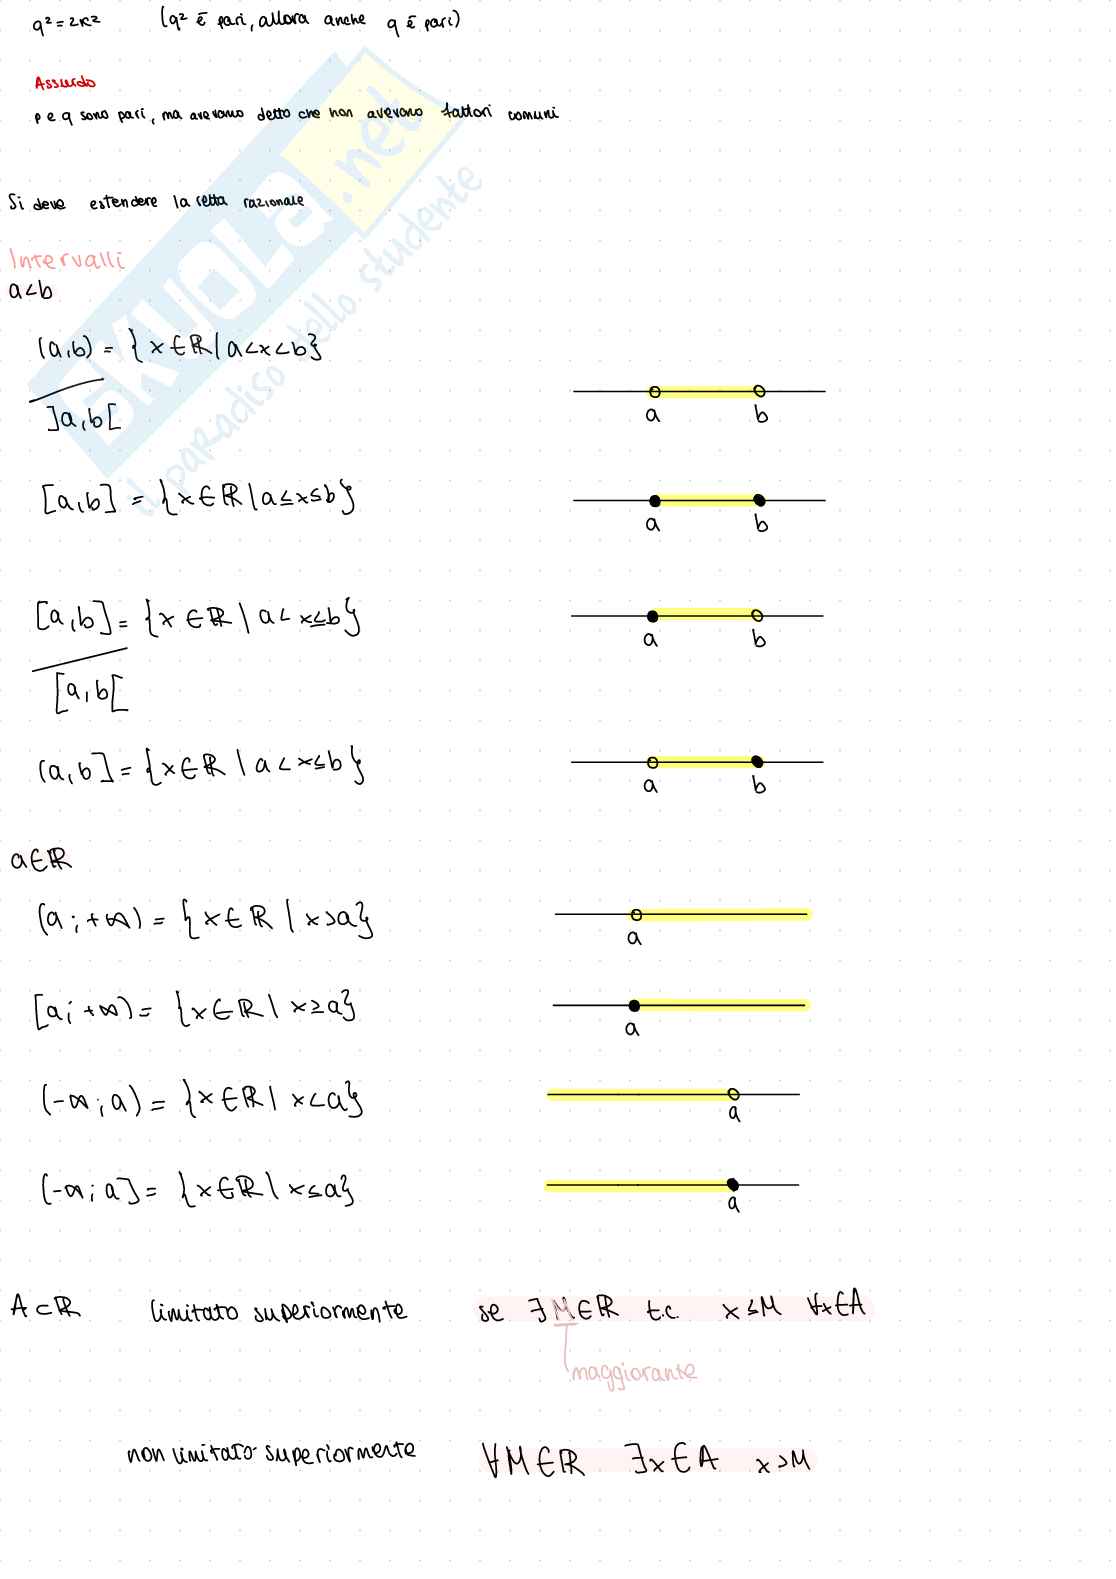 q² = 2k² (q² è pari, allora anche q è pari)
Assurdo
p e q sono pari, ma avevamo detto che non avevano fattori comuni
Si deve estendere la retta razionale
Intervalli
a<b
(a,b) = {x∈ℝ | a<x<b}
]a,b[
a b
[a,b] = {x∈ℝ | a≤x≤b}
a b
[a,b] = {x∈ℝ | a< x≤b}
[a,b[
a b
(a,b] = {x∈ℝ | a<x≤b}
a b
a∈ℝ
(a;+∞) = {x∈ℝ | x>a}
a
[a;+∞) = {x∈ℝ | x≥a}
a
(-∞;a) = {x∈ℝ | x<a}
a
(-∞;a] = {x∈ℝ | x≤a}
a
A⊂ℝ limitato superiormente se ∃M∈ℝ t.c. x≤M ∀x∈A
maggiorante
non limitato superiormente ∀M∈ℝ ∃x∈A x>M
SKUOLA.net
il paradiso dello studente